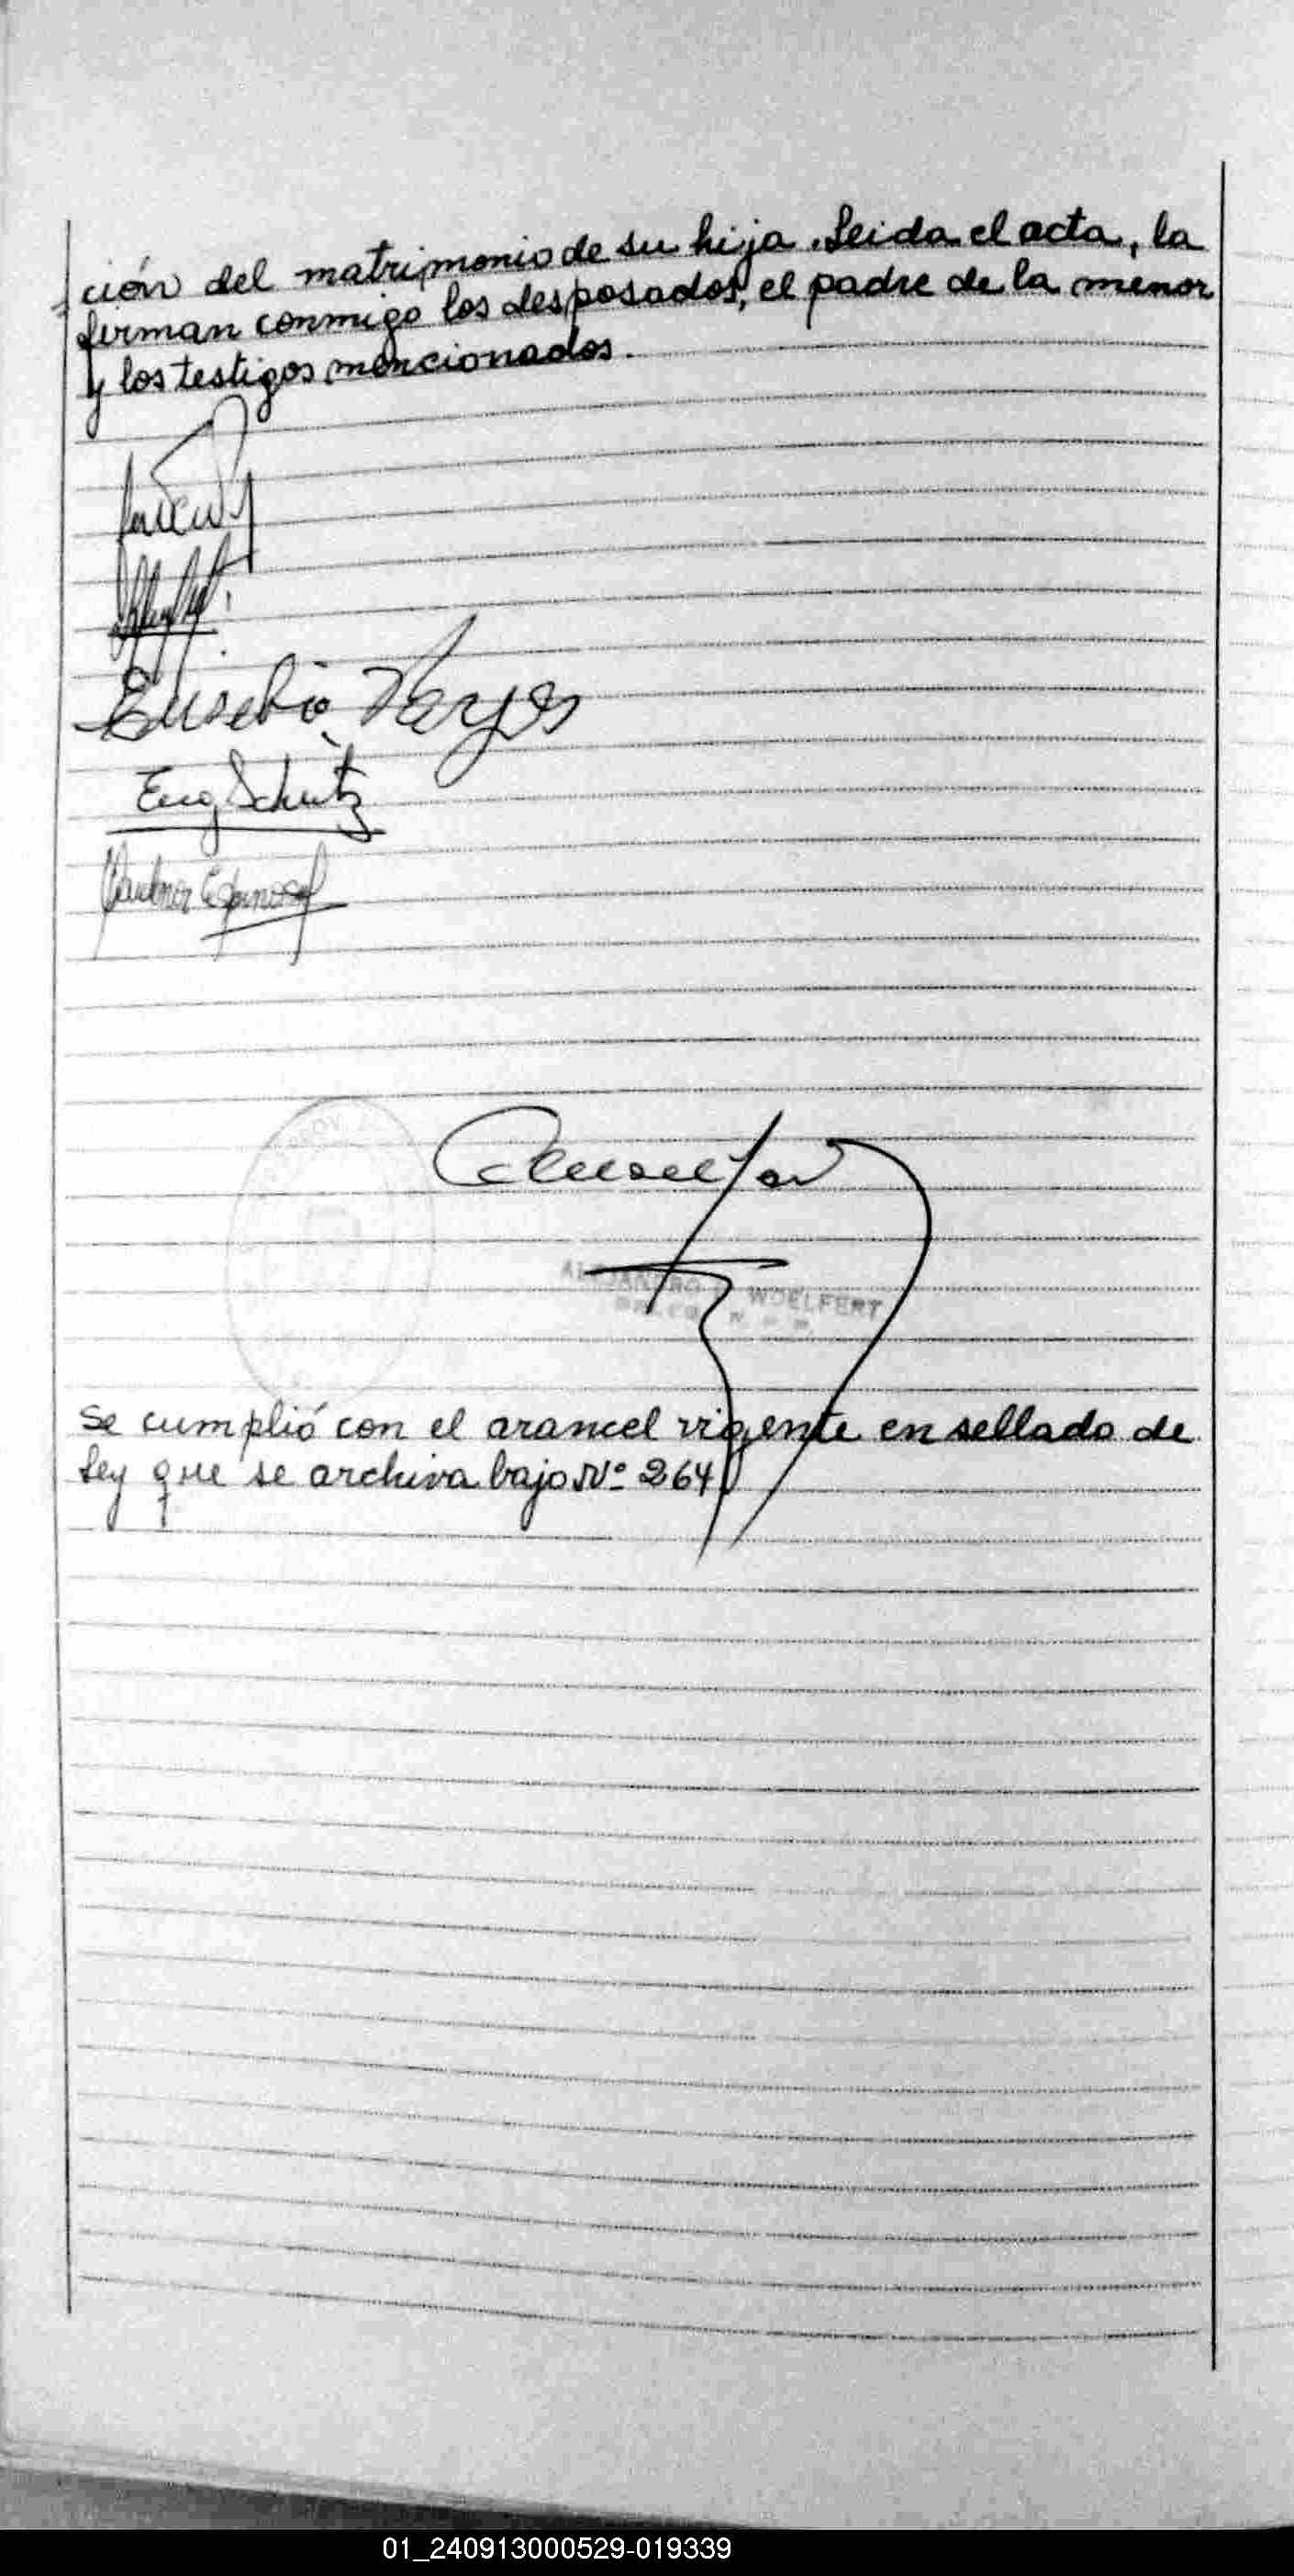 =ción del matrimonio de su hija. Leida el acta, la
firman conmigo los desposados, el padre de la menor
y los testigos mencionados.
Eusebio Reyes
Eug Schutz
Espinosa
PROV
ALEJANDRO WOELFERT
Se cumplió con el arancel vigente en sellado de
Ley que se archiva bajo Nº 264
01_240913000529-019339